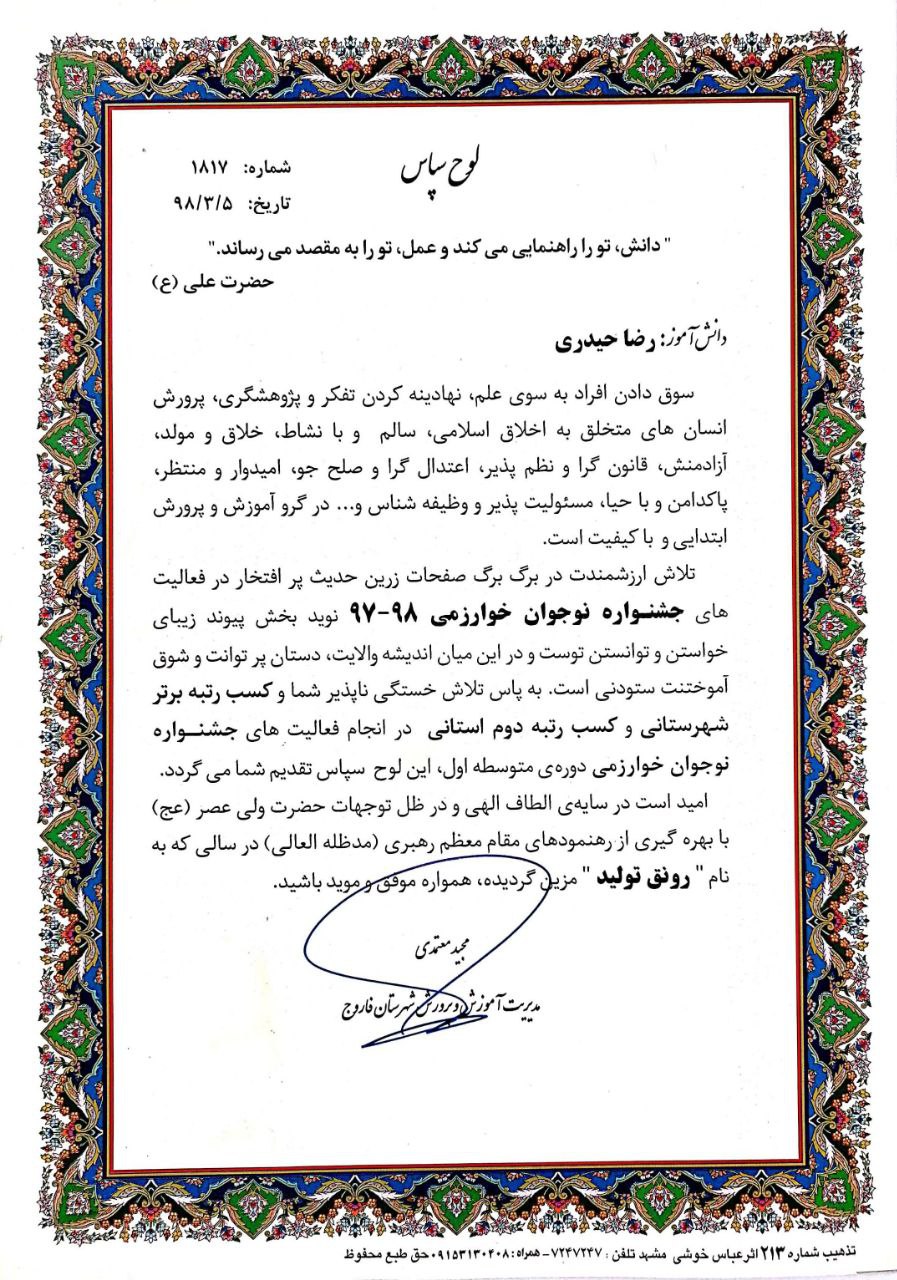 لوح سپاس
شماره: ۱۸۱۷
تاریخ: ۹۸/۳/۵
" دانش، تو را راهنمایی می کند و عمل، تو را به مقصد می رساند."
حضرت علی (ع)
دانش آموز: رضا حیدری
سوق دادن افراد به سوی علم، نهادینه کردن تفکر و پژوهشگری، پرورش
انسان های متخلق به اخلاق اسلامی، سالم و با نشاط، خلاق و مولد،
آزادمنش، قانون گرا و نظم پذیر، اعتدال گرا و صلح جو، امیدوار و منتظر،
پاکدامن و با حیا، مسئولیت پذیر و وظیفه شناس و... در گرو آموزش و پرورش
ابتدایی و با کیفیت است.
تلاش ارزشمندت در برگ برگ صفحات زرین حدیث پر افتخار در فعالیت
های جشنواره نوجوان خوارزمی ۹۸-۹۷ نوید بخش پیوند زیبای
خواستن و توانستن توست و در این میان اندیشه والایت، دستان پر توانت و شوق
آموختنت ستودنی است. به پاس تلاش خستگی ناپذیر شما و کسب رتبه برتر
شهرستانی و کسب رتبه دوم استانی در انجام فعالیت های جشنواره
نوجوان خوارزمی دوره‌ی متوسطه اول، این لوح سپاس تقدیم شما می گردد.
امید است در سایه‌ی الطاف الهی و در ظل توجهات حضرت ولی عصر (عج)
با بهره گیری از رهنمودهای مقام معظم رهبری (مدظله العالی) در سالی که به
نام " رونق تولید " مزین گردیده، همواره موفق و موید باشید.
مجید معتمدی
مدیریت آموزش و پرورش شهرستان فاروج
تذهیب شماره ۲۱۳ اثر عباس خوشی مشهد تلفن : ۷۲۴۷۲۴۷ - همراه : ۰۹۱۵۳۱۳۰۴۰۸ حق طبع محفوظ